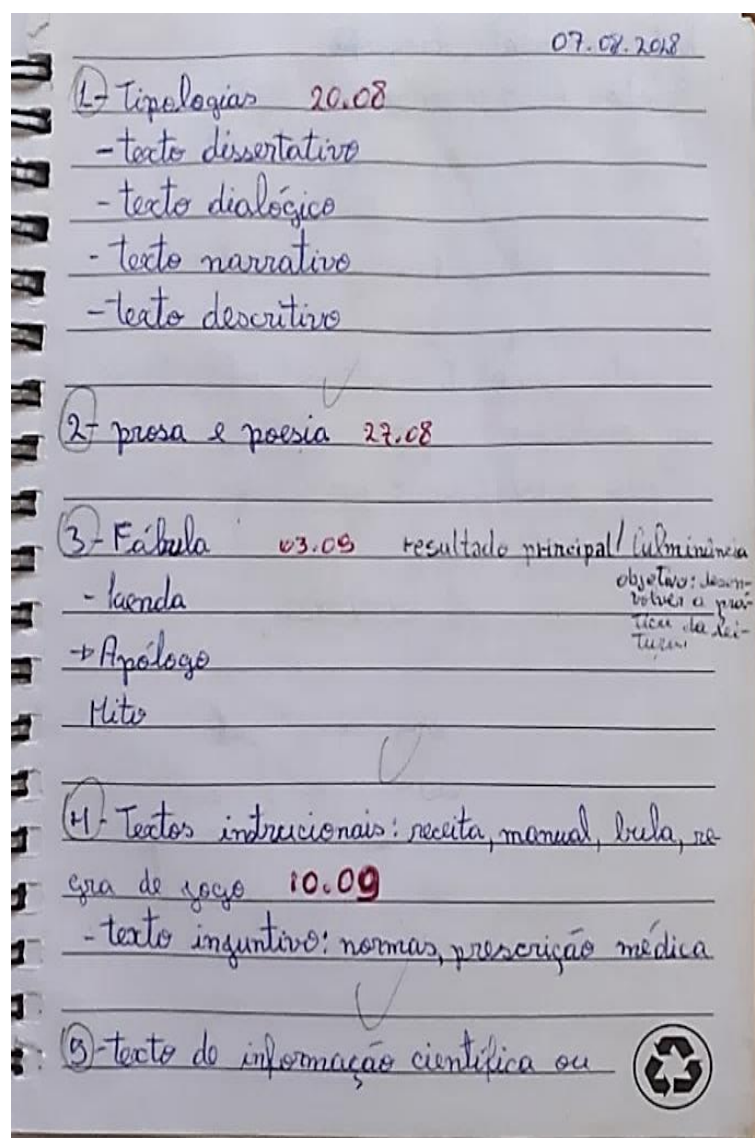 07.08.2018
1- Tipologias 20.08
- texto dissertativo
- texto dialógico
- texto narrativo
- texto descritivo
2- prosa e poesia 27.08
3- Fábula 03.09 resultado principal/ Culminância
objetivo: desen-
volver a prá-
tica da lei-
tura
- Lenda
→ Apólogo
Mito
4- Textos intrucionais: receita, manual, bula, re
gra de jogo 10.09
- texto injuntivo: normas, prescrição médica
5- texto de informação científica ou